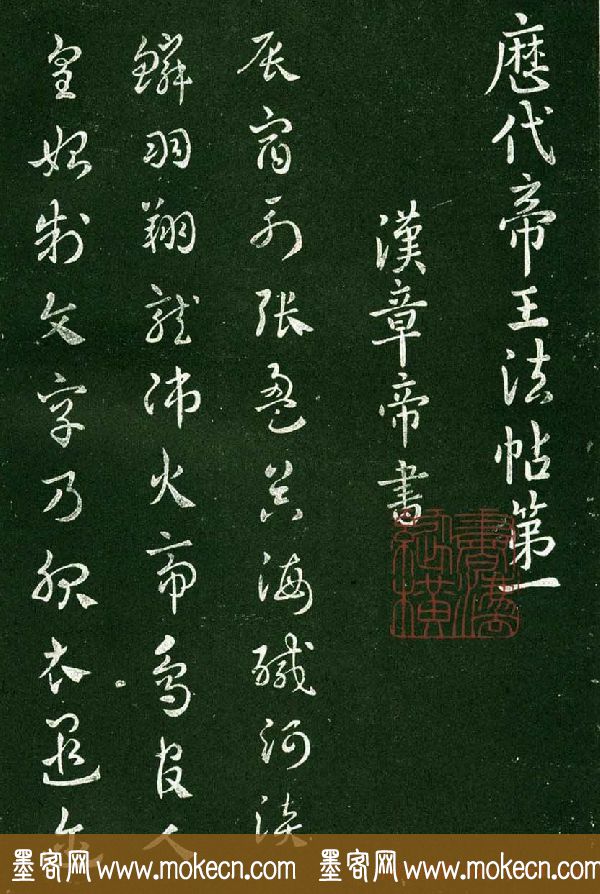 歷代帝王法帖第一
漢章帝書
辰宿列張盈昃海鹹河淡
鱗羽翔龍師火帝鳥官人
皇始制文字乃服衣遐
墨客网 www.mokecn.com 墨客网 www.mokecn.com